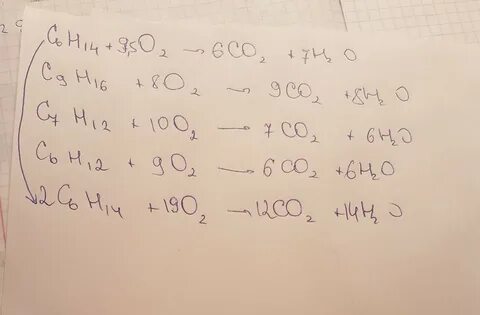 C₆H₁₄ + 9,5O₂ → 6CO₂ + 7H₂O
C₉H₁₆ + 8O₂ → 9CO₂ + 8H₂O
C₇H₁₂ + 10O₂ → 7CO₂ + 6H₂O
C₆H₁₂ + 9O₂ → 6CO₂ + 6H₂O
2C₆H₁₄ + 19O₂ → 12CO₂ + 14H₂O